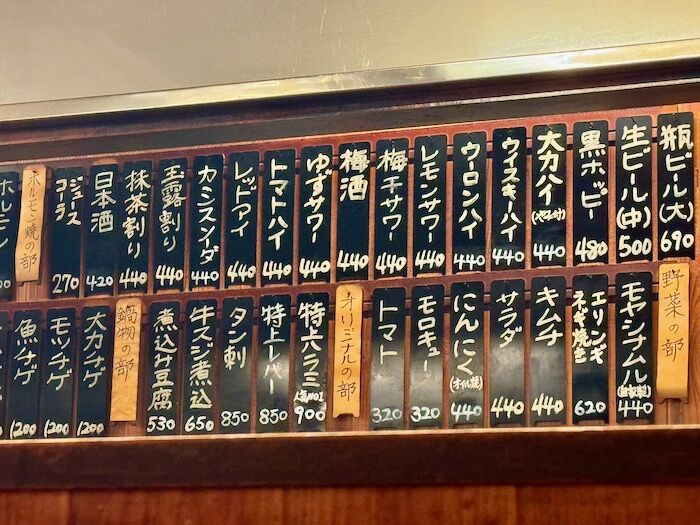 瓶ビール(大) 690
生ビール(中) 500
黒ホッピー 480
大カハイ 440
ウイスキーハイ 440
ウーロンハイ 440
レモンサワー 440
梅干サワー 440
梅酒 440
ゆずサワー 440
トマトハイ 440
レッドアイ 440
カシスソーダ 440
玉露割り 440
抹茶割り 440
日本酒 420
ジュース
コーラ 270
ホルモン焼の部
ホルモン
野菜の部
モヤシナムル(自家製) 440
エリンギ
ネギ焼き 620
キムチ 440
サラダ 440
にんにく(オイル焼) 440
モロキュー 320
トマト 320
オリジナルの部
特穴ラミ 人気No1 900
特上レバー 850
タン刺 850
牛スジ煮込 650
煮込み豆腐 530
鍋物の部
大カチゲ 1200
モツチゲ 1200
魚チゲ 1200